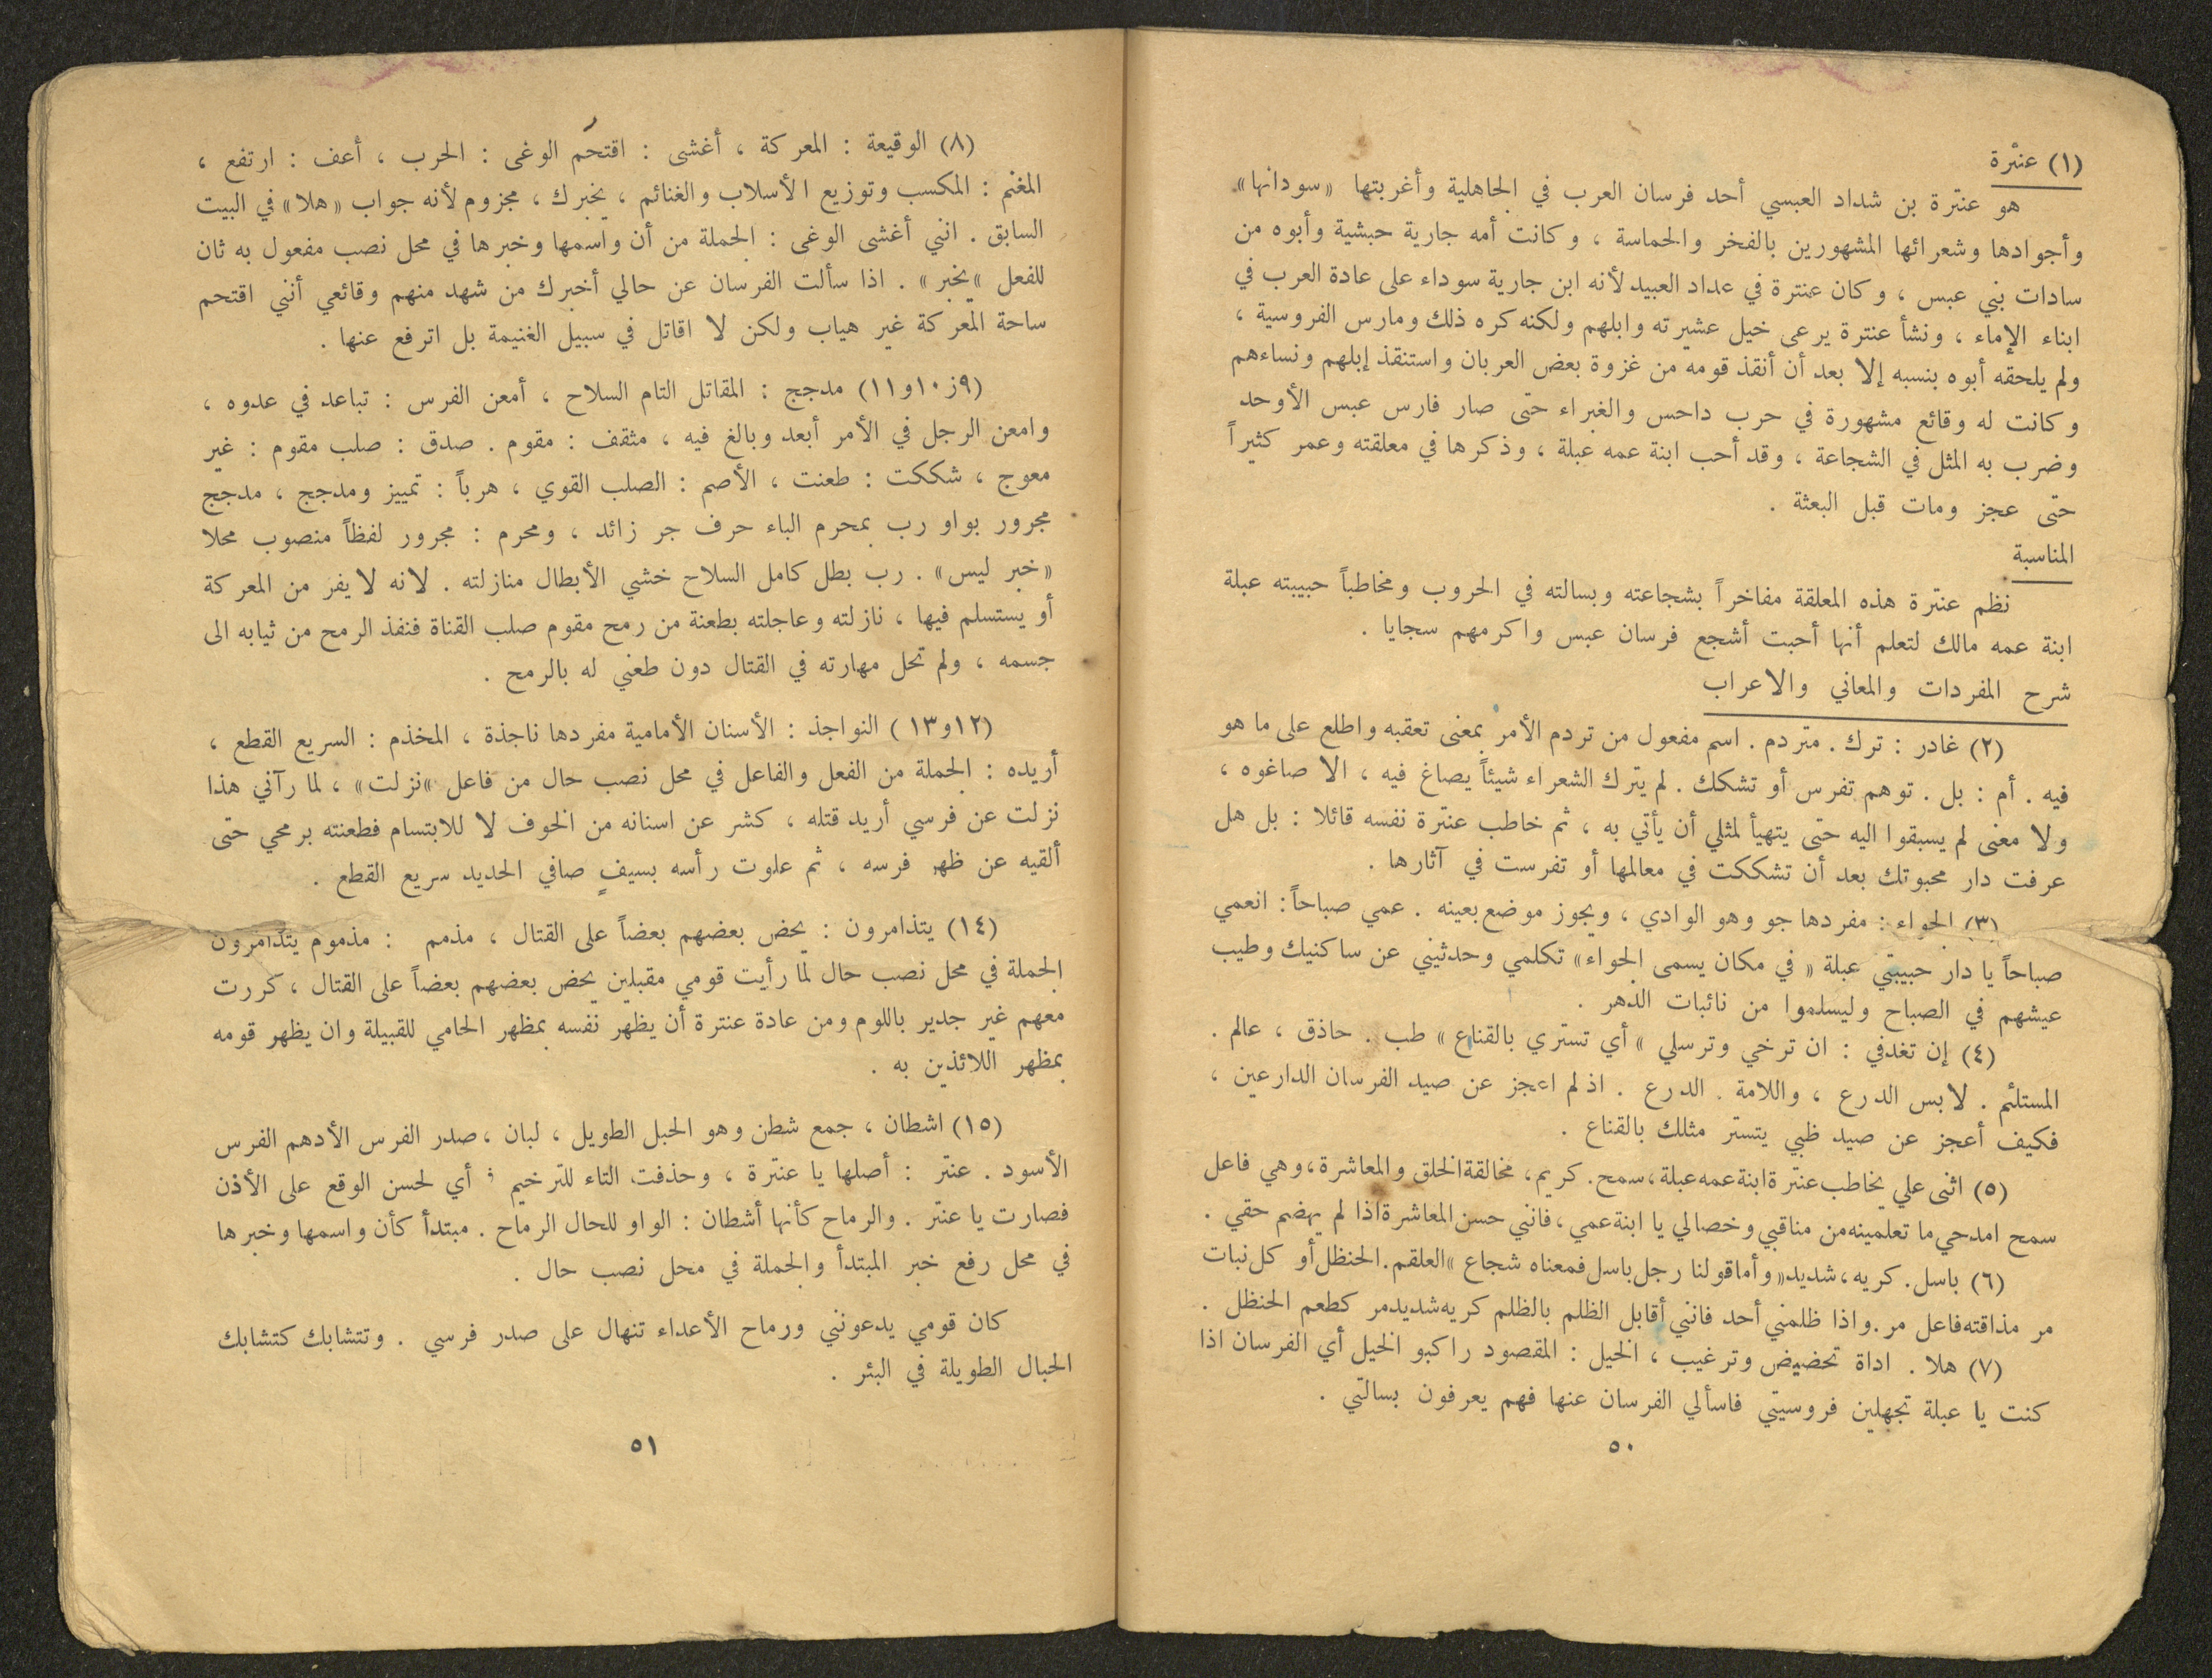 (١) عنترة
هو عنترة بن شداد العبسي أحد فرسان العرب في الجاهلية وأغربتها «سودانها»
وأجوادها وشعرائها المشهورين بالفخر والحماسة ، وكانت أمه جارية حبشية وأبوه من
سادات بني عبس ، وكان عنترة في عداد العبيد لأنه ابن جارية سوداء على عادة العرب في
ابناء الإماء ، ونشأ عنترة يرعى خيل عشيرته وابلهم ولكنه كره ذلك ومارس الفروسية ،
ولم يلحقه أبوه بنسبه إلا بعد أن أنقذ قومه من غزوة بعض العربان واستنقذ إبلهم ونساءهم
وكانت له وقائع مشهورة في حرب داحس والغبراء حتى صار فارس عبس الأوحد
وضرب به المثل في الشجاعة ، وقد أحب ابنة عمه عبلة ، وذكرها في معلقته وعمر كثيراً
حتى عجز ومات قبل البعثة .
المناسبة
نظم عنترة هذه المعلقة مفاخراً بشجاعته وبسالته في الحروب ومخاطباً حبيبته عبلة
ابنة عمه مالك لتعلم أنها أحبت أشجع فرسان عبس واكرمهم سجايا .
شرح المفردات والمعاني والاعراب
(٢) غادر : ترك . متردم . اسم مفعول من تردم الأمر بمعنى تعقبه واطلع على ما هو
فيه . أم : بل . توهم تفرس أو تشكك . لم يترك الشعراء شيئاً يصاغ فيه ، الا صاغوه ،
ولا معنى لم يسبقوا اليه حتى يتهيأ لمثلي أن يأتي به ، ثم خاطب عنترة نفسه قائلا : بل هل
عرفت دار محبوتك بعد أن تشككت في معالمها أو تفرست في آثارها .
(٣) الجواء : مفردها جو وهو الوادي ، ويجوز موضع بعينه . عمي صباحاً : انعمي
صباحاً يا دار حبيبتي عبلة « في مكان يسمى الجواء» تكلمي وحدثيني عن ساكنيك وطيب
عيشهم في الصباح وليسلموا من نائبات الدهر .
(٤) إن تغدفي : ان ترخي وترسلي » أي تستري بالقناع » طب . حاذق ، عالم .
المستلئم . لابس الدرع ، واللامة . الدرع . اذ لم اعجز عن صيد الفرسان الدارعين ،
فكيف أعجز عن صيد ظبي يتستر مثلك بالقناع .
(٥) اثنى علي يخاطب عنترة ابنة عمه عبلة ، سمح . كريم ، مخالقة الخلق والمعاشرة ، وهي فاعل
سمح امدحي ما تعلمينه من مناقبي وخصالي يا ابنة عمي ، فانني حسن المعاشرة اذا لم يهضم حقي .
(٦) باسل . كريه ، شديد« وأما قولنا رجل باسل فمعناه شجاع »العلقم . الحنظل أو كل نبات
مر مذاقته فاعل مر . واذا ظلمني أحد فانني أقابل الظلم بالظلم كريه شديد مر كطعم الحنظل .
(٧) هلا . اداة تحضيض وترغيب ، الخيل : المقصود راكبو الخيل أي الفرسان اذا
كنت يا عبلة تجهلين فروسيتي فاسألي الفرسان عنها فهم يعرفون بسالتي .
٥٠
(٨) الوقيعة : المعركة ، أغشى : اقتحم الوغى : الحرب ، أعف : ارتفع ،
المغنم : المكسب وتوزيع الأسلاب والغنائم ، يخبرك ، مجزوم لأنه جواب «هلا» في البيت
السابق . انني أغشى الوغى : الجملة من أن واسمها وخبرها في محل نصب مفعول به ثان
للفعل »يخبر» . اذا سألت الفرسان عن حالي أخبرك من شهد منهم وقائعي أنني اقتحم
ساحة المعركة غير هياب ولكن لا اقاتل في سبيل الغنيمة بل اترفع عنها .
(٩ز١٠و١١) مدجج : المقاتل التام السلاح ، أمعن الفرس : تباعد في عدوه ،
وامعن الرجل في الأمر أبعد وبالغ فيه ، مثقف : مقوم . صدق : صلب مقوم : غير
معوج ، شككت : طعنت ، الأصم : الصلب القوي ، هرباً : تمييز ومدجج ، مدجج
مجرور بواو رب بمحرم الباء حرف جر زائد ، ومحرم : مجرور لفظاً منصوب محلا
«خبر ليس» . رب بطل كامل السلاح خشي الأبطال منازلته . لانه لا يفر من المعركة
أو يستسلم فيها ، نازلته وعاجلته بطعنة من رمح مقوم صلب القناة فنفذ الرمح من ثيابه الى
جسمه ، ولم تحل مهارته في القتال دون طعني له بالرمح .
(١٢و١٣ ) النواجذ : الأسنان الأمامية مفردها ناجذة ، المخذم : السريع القطع ،
أريده : الجملة من الفعل والفاعل في محل نصب حال من فاعل »نزلت» ، لما رآني هذا
نزلت عن فرسي أريد قتله ، كشر عن اسنانه من الخوف لا للابتسام فطعنته برمحي حتى
ألقيه عن ظهر فرسه ، ثم علوت رأسه بسيفٍ صافي الحديد سريع القطع .
(١٤) يتذامرون : يحض بعضهم بعضاً على القتال ، مذمم : مذموم يتذامرون
الجملة في محل نصب حال لما رأيت قومي مقبلين يحض بعضهم بعضاً على القتال ، كررت
معهم غير جدير باللوم ومن عادة عنترة أن يظهر نفسه بمظهر الحامي للقبيلة وان يظهر قومه
بمظهر اللائذين به .
(١٥) اشطان ، جمع شطن وهو الحبل الطويل ، لبان ، صدر الفرس الأدهم الفرس
الأسود . عنتر : أصلها يا عنترة ، وحذفت التاء للترخيم ، أي لحسن الوقع على الأذن
فصارت يا عنتر . والرماح كأنها أشطان : الواو للحال الرماح . مبتدأ كأن واسمها وخبرها
في محل رفع خبر المبتدأ والجملة في محل نصب حال .
كان قومي يدعونني ورماح الأعداء تنهال على صدر فرسي . وتتشابك كتشابك
الحبال الطويلة في البئر .
٥١